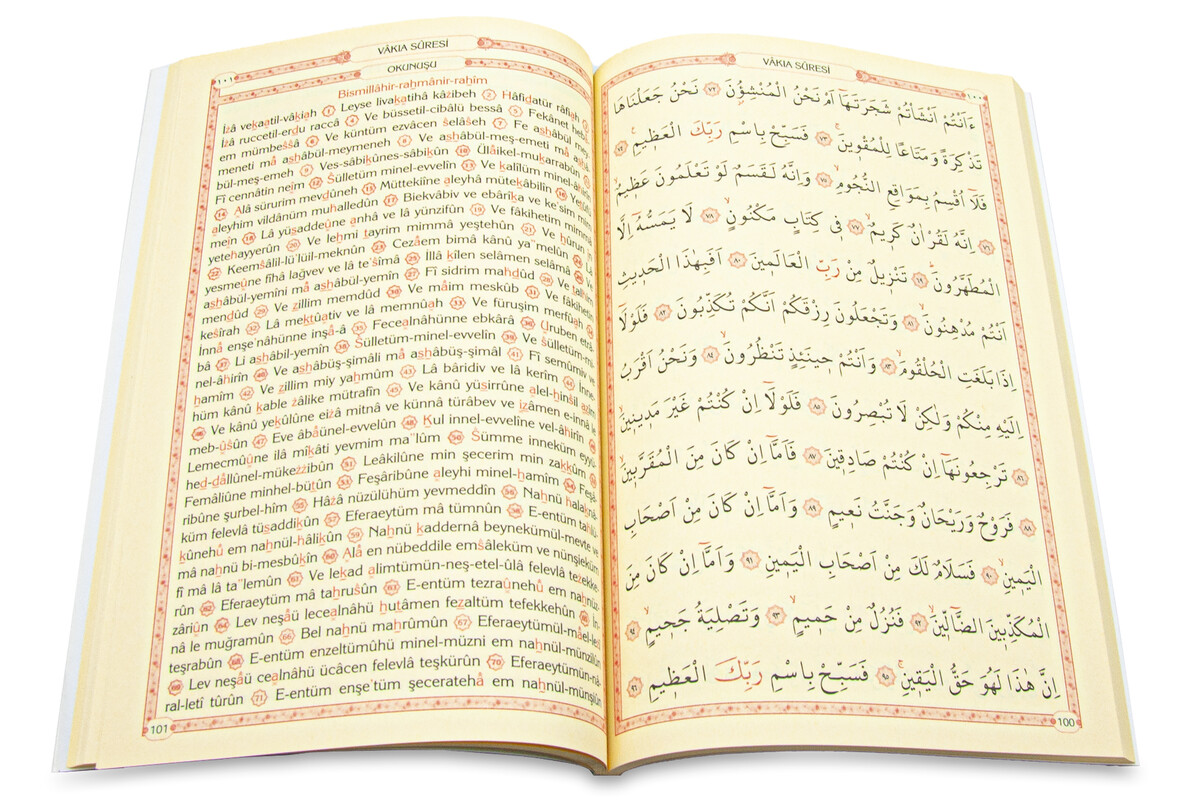 VÂKIA SÛRESİ
١٠٠
ءَاَنْتُمْ اَنْشَاْتُمْ شَجَرَتَهَٓا اَمْ نَحْنُ الْمُنْشِؤُ۫نَ ﴿٧٢﴾ نَحْنُ جَعَلْنَاهَا
تَذْكِرَةً وَمَتَاعًا لِلْمُقْو۪ينَۚ ﴿٧٣﴾ فَسَبِّحْ بِاسْمِ رَبِّكَ الْعَظ۪يمِ۟ ﴿٧٤﴾
فَلَٓا اُقْسِمُ بِمَوَاقِعِ النُّجُومِۙ ﴿٧٥﴾ وَاِنَّهُ لَقَسَمٌ لَوْ تَعْلَمُونَ عَظ۪يمٌۙ
﴿٧٦﴾ اِنَّهُ لَقُرْاٰنٌ كَر۪يمٌۙ ﴿٧٧﴾ ف۪ي كِتَابٍ مَكْنُونٍۙ ﴿٧٨﴾ لَا يَمَسُّهُٓ اِلَّا
الْمُطَهَّرُونَۜ ﴿٧٩﴾ تَنْز۪يلٌ مِنْ رَبِّ الْعَالَم۪ينَ ﴿٨٠﴾ اَفَبِهٰذَا الْحَد۪يثِ
اَنْتُمْ مُدْهِنُونَۙ ﴿٨١﴾ وَتَجْعَلُونَ رِزْقَكُمْ اَنَّكُمْ تُكَذِّبُونَ ﴿٨٢﴾ فَلَوْلَٓا
اِذَا بَلَغَتِ الْحُلْقُومَۙ ﴿٨٣﴾ وَاَنْتُمْ ح۪ينَئِذٍ تَنْظُرُونَۙ ﴿٨٤﴾ وَنَحْنُ اَقْرَبُ
اِلَيْهِ مِنْكُمْ وَلٰكِنْ لَا تُبْصِرُونَ ﴿٨٥﴾ فَلَوْلَٓا اِنْ كُنْتُمْ غَيْرَ مَد۪ين۪ينَۙ
﴿٨٦﴾ تَرْجِعُونَهَٓا اِنْ كُنْتُمْ صَادِق۪ينَ ﴿٨٧﴾ فَاَمَّٓا اِنْ كَانَ مِنَ الْمُقَرَّب۪ينَۙ
﴿٨٨﴾ فَرَوْحٌ وَرَيْحَانٌ وَجَنَّتُ نَع۪يمٍ ﴿٨٩﴾ وَاَمَّٓا اِنْ كَانَ مِنْ اَصْحَابِ
الْيَم۪ينِۙ ﴿٩٠﴾ فَسَلَامٌ لَكَ مِنْ اَصْحَابِ الْيَم۪ينِ ﴿٩١﴾ وَاَمَّٓا اِنْ كَانَ مِنَ
الْمُكَذِّب۪ينَ الضَّٓالّ۪ينَۙ ﴿٩٢﴾ فَنُزُلٌ مِنْ حَم۪يمٍۙ ﴿٩٣﴾ وَتَصْلِيَةُ جَح۪يمٍ ﴿٩٤﴾
اِنَّ هٰذَا لَهُوَ حَقُّ الْيَق۪ينِۚ ﴿٩٥﴾ فَسَبِّحْ بِاسْمِ رَبِّكَ الْعَظ۪يمِ ﴿٩٦﴾
100
VÂKIA SÛRESİ
١٠١
OKUNUŞU
Bismillâhir-rahmânir-rahîm
İzâ vekaatil-vâkiah 1 Leyse livakatihâ kâzibeh 2 Hâfidatür râfiah
İzâ ruccetil-erdu raccâ 4 Ve büssetil-cibâlü bessâ 5 Fekânet hebâ
em mümbeśśâ 6 Ve küntüm ezvâcen śelâśeh 7 Fe ashâbül mey-
meneti mâ ashâbül-meymeneh 8 Ve ashâbül-meş-emeti mâ ashâ
bül-meş-emeh 9 Ves-sâbikûnes-sâbikûn 10 Ülâikel-mukarrabûn
Fî cennâtin neîm 12 Śülletüm minel-evvelîn 13 Ve kalîlüm minel-âhirîn
14 Alâ sürurim mevdûneh 15 Müttekiîne aleyhâ mütekâbilîn 16 Yetûfü
aleyhim vildânüm muhalledûn 17 Biekvâbiv ve ebârîka ve ke'sim mim
meîn 18 Lâ yüsaddeûne anhâ ve lâ yünzifûn 19 Ve fâkihetim mimmâ
yetehayyerûn 20 Ve lehmi tayrim mimmâ yeştehûn 21 Ve hûrun
22 Keemśâlil-lü'lüil-meknûn 23 Cezâem bimâ kânû ya'melûn 24 Lâ
yesmeûne fîhâ lağvev ve lâ te'śîmâ 25 İllâ kîlen selâmen selâmâ 26 Ve
ashâbül-yemîni mâ ashâbül-yemîn 27 Fî sidrim mahdûd 28 Ve talhim
mendûd 29 Ve zillim memdûd 30 Ve mâim meskûb 31 Ve fâkihetin
keśîrah 32 Lâ mektûativ ve lâ memnûah 33 Ve füruşim merfûah
İnnâ enşe'nâhünne inşâ-â 35 Fecealnâhünne ebkârâ 36 Uruben etrâ
bâ 37 Li ashâbil-yemîn 38 Śülletüm-minel-evvelîn 39 Ve śülletüm-mi
nel-âhirîn 40 Ve ashâbüş-şimâli mâ ashâbüş-şimâl 41 Fî semûmiv ve
hamîm 42 Ve zillim miy yahmûm 43 Lâ bâridiv ve lâ kerîm 44 İnne-
hüm kânû kable zâlike mütrafîn 45 Ve kânû yüsirrûne alel-hinśil azîm
46 Ve kânû yekûlûne eizâ mitnâ ve künnâ türâbev ve izâmen e-innâ le
meb-ûśûn 47 Eve âbâünel-evvelûn 48 Kul innel-evvelîne vel-âhirîn
Lemecmûûne ilâ mîkâti yevmim ma'lûm 50 Śümme inneküm eyyü-
hed-dâllûnel-mükezzibûn 51 Leakilûne min şecerim min zakkûm
Femâliûne minhel-bütûn 53 Feşâribûne aleyhi minel-hamîm 54 Feşâ-
ribûne şurbel-hîm 55 Hâzâ nüzülühüm yevmeddîn 56 Nahnü halakna
küm felevlâ tüsaddikûn 57 Eferaeytüm mâ tümnûn 58 E-entüm tahlü-
kûnehû em nahnül-hâlikûn 59 Nahnü kaddernâ beynekümül-mevte ve
mâ nahnü bi-mesbûkîn 60 Alâ en nübeddile emśâleküm ve nünşieküm
fî mâ lâ ta'lemûn 61 Ve lekad alimtümün-neş-etel-ûlâ felevlâ tezekke-
rûn 62 Eferaeytüm mâ tahruśûn 63 E-entüm tezraûnehû em nahnüz-
zâriûn 64 Lev neşâü lecealnâhü hutâmen fezaltüm tefekkehûn 65 İn-
nâ le muğramûn 66 Bel nahnü mahrûmûn 67 Eferaeytümül-mâel-lezî
teşrabûn 68 E-entüm enzeltümûhü minel-müzni em nahnül-münzilûn
69 Lev neşâü cealnâhü ücâcen felevlâ teşkürûn 70 Eferaeytümün-nâ-
ral-letî tûrûn 71 E-entüm enşe'tüm şeceratehâ em nahnül-münşiûn
101